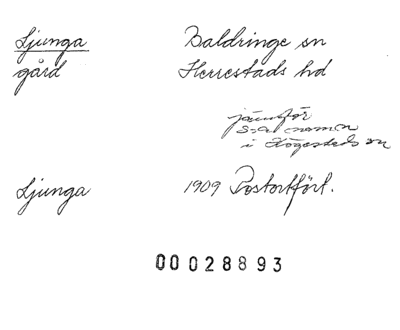 Ljunga Baldringe sn
gård Herrestads hd
jämför
s:a namn
i Högestads sn
Ljunga 1909 Postortfört.
00028893